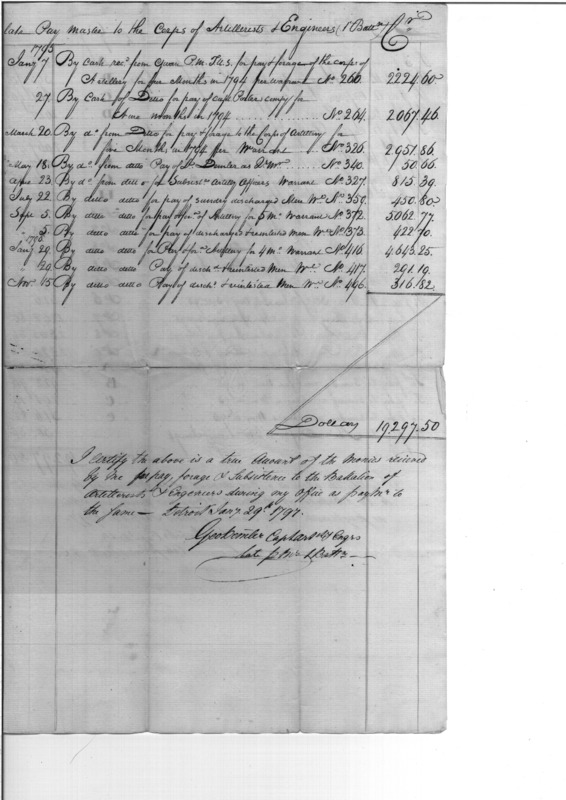 late Pay Master to the Corps of Artillerists & Engineers (1st Battn) Cr.
1795
Jany 7 By Cash recd from P.M.T.U.S. for pay & forage of the corps of
Artillery for five Months in 1794 per warrant No. 260. 2224.60
27 By Cash of Ditto for pay of Capt. Porter's compy for
some months in 1794 No. 264. 2067.46
March 20 By do from Ditto for pay & forage to the Corps of Artillery for
five Months in 1794 per Warrant No. 326. 2951.86
May 18 By do from ditto Pay of Lt Dunler as Qr Mr No. 340. 50.66
23 By do from ditto for Subsistce Artilley Warrant No. 327. 815.39
July 22 By ditto ditto for pay of sundry discharged Men Wt No. 359. 450.80
Sept 5 By ditto ditto for pay of Artillery for 5 Ms Warrant No. 372. 5062.77
" 5 By ditto ditto for pay of discharged & reinlisted men Wt No. 373. 422.70
1796
Jany 29 By ditto ditto for Pay Artillery for 4 Ms Warrant No. 416. 4643.25
" 29 By ditto ditto Pay of dischd & reinlisted Men Wt No. 417. 291.19
Novr 15 By ditto ditto Pay of dischd & reinlisted Men Wt No. 446. 316.82
Dollars 19,297.50
I certify the above is a true Amount of the Monies recieved
by me for pay, forage & Subsistence to the Battalion of
Artillerists & Engineers during my Office as pay Mr to
the same — Detroit Jany 29th 1797.
Capt Art of Engrs
late P. Mr 1 Battn